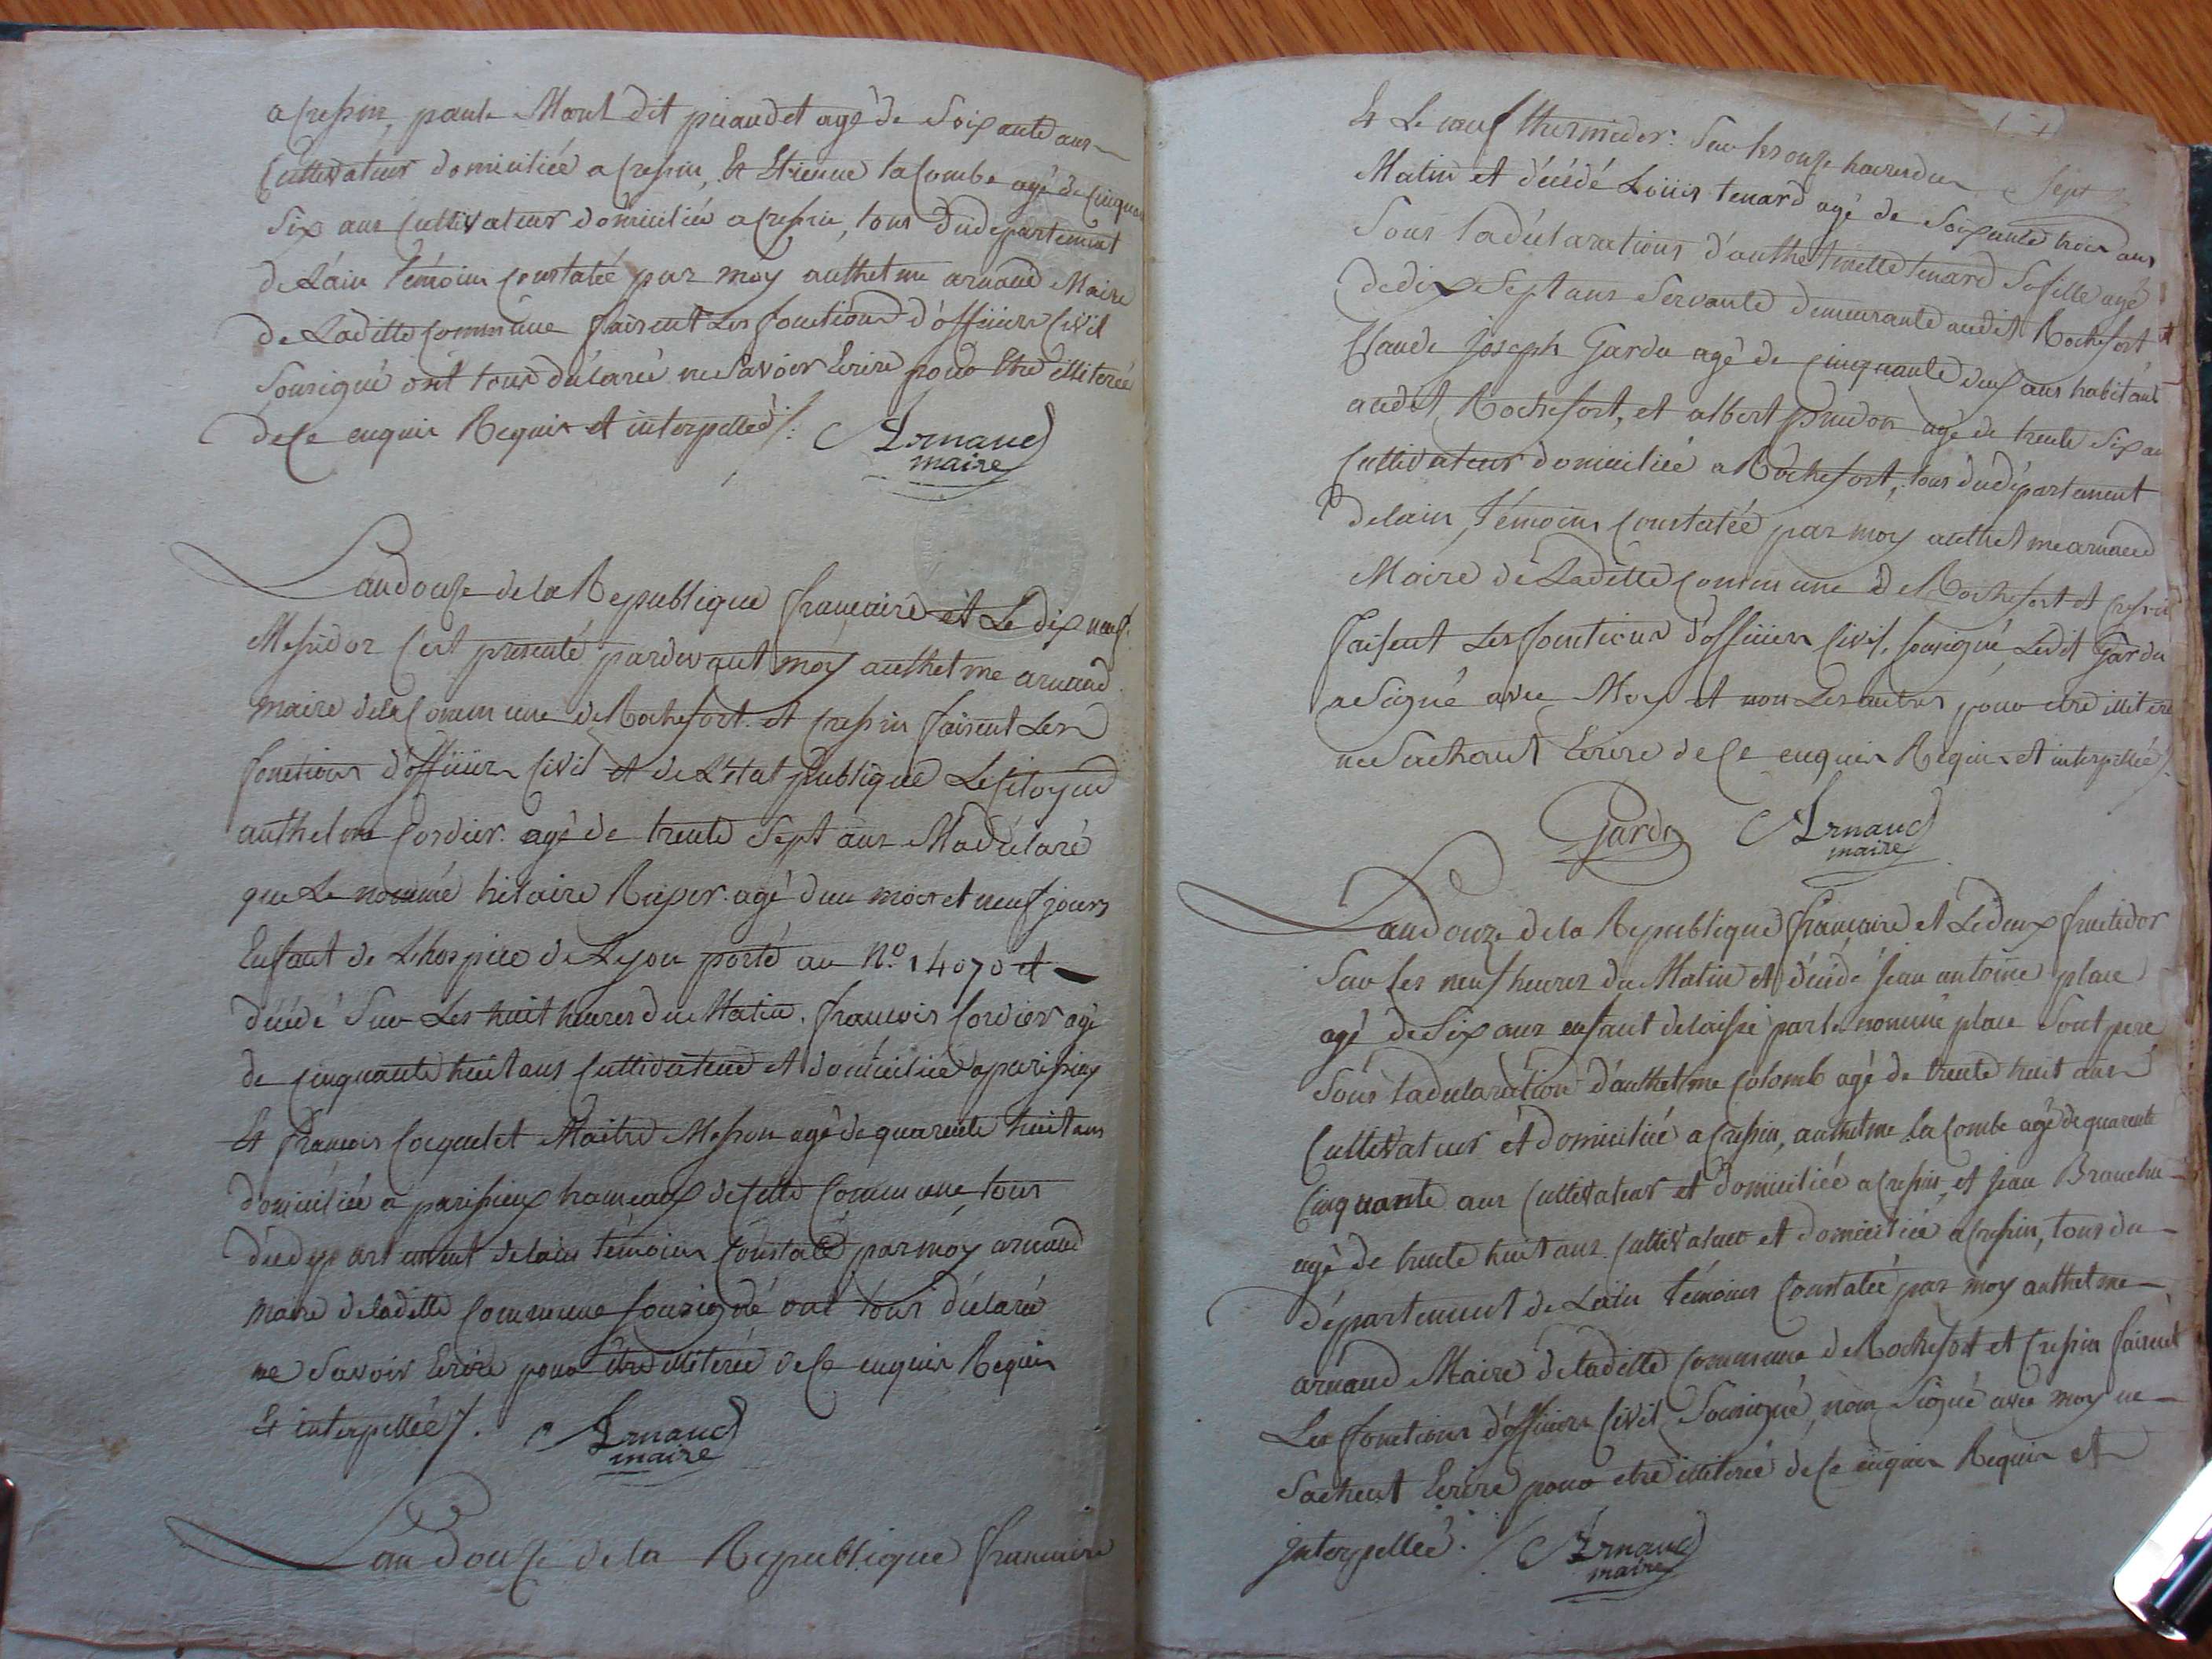 a Cressin, paule Mont dit piaudet agé de Soixante ans
Cultivateur domiciliée a Cressin, Et Etienne la Combe agé de Cinquante
Six ans Cultivateur domiciliée a Cressin, tous du departement
de L'ain temoins Constatée par moy anthelme arnaud Maire
de Laditte Commune faisent Les fonctions d'officier Civil
Sousigné ont tous déclaré ne Savoir Ecrire pour Etre illiterée
de Ce enquis Requis et interpelled /.
Arnaud
maire
L'an douze de la Republique francaise et Le dix neuf
Messidor C'est presenté pardevant moy anthelme arnaud
maire de la Commune de Rochefort et Cressin faisent Les
fonctions d'officier Civil et de L'Etat publique Le Citoyen
anthelme Cordier agé de trente Sept ans M'a déclaré
que Le nommé hilaire agé d'un mois et neuf jours
Enfant de Lhospice de Lyon porté au N.o 14070 et
décédé Sur Les huit heures du Matin. francois Cordier agé
de Cinquante huit ans Cultivateur et domiciliée a parissieu
Et francois Cocquelet Maitre Masson agé de quarente huit ans
domiciliée a parissieux hameaux de Cette Commune, tous
du departement de lain temoins Constatée par moy arnaud
maire de laditte Commune Sousigné ont tous déclaré
ne Savoir Ecrire pour Etre illiterée de Ce enquis Requis
Et interpellée /.
Arnaud
maire
L'an douze de la Republique francaise
Sept
Et Le neuf thermidor Sur les onze heures du
Matin et décédé Louis tenard agé de Soixante trois ans
Sous la déclarations d'anthelmette tenard Sa fille agé
de dix Sept ans Servante demeurante audit Rochefort et
Claude joseph Gardu agé de Cinquante deux ans habitant
audit Rochefort, et albert prudon agé de trente Six ans
Cultivateur domiciliée a Rochefort, tous du département
de lain, témoins Constatée par moy anthelme arnaud
Maire de Laditte Commune de Rochefort et Cressin
faisent Les fonctions d'officier Civil, Sousigné, Ledit Gardu
a Signé avec Moy et non Les autres pour etre illiterée
ne Sachant Ecrire de Ce enquis Requis et interpellée /.
Gardu Arnaud
maire
L'an douze de la Republique francaise et Le deux fructidor
Sur les neuf heures du Matin et décédé jean antoine place
agé de Six ans enfant delaissé par le nommé place Sont pere
Sous la declaration d'anthelme Colomb agé de trente huit ans
Cultivateur et domiciliée a Cressin, anthelme La Combe agé de quarente
Cinquante ans Cultivateur et domiciliée a Cressin, et jean
agé de trente huit ans Cultivateur et domiciliée a Cressin, tous du
département de L'ain temoins Constatée par moy anthelme
arnaud Maire de laditte Commune de Rochefort et Cressin faisent
Les fonctions d'officier Civil, Sousigné, nom Signé avec moy ne
Sachent Ecrire pour etre illiterée de Ce enquis Requis et
interpellée. /.
Arnaud
maire